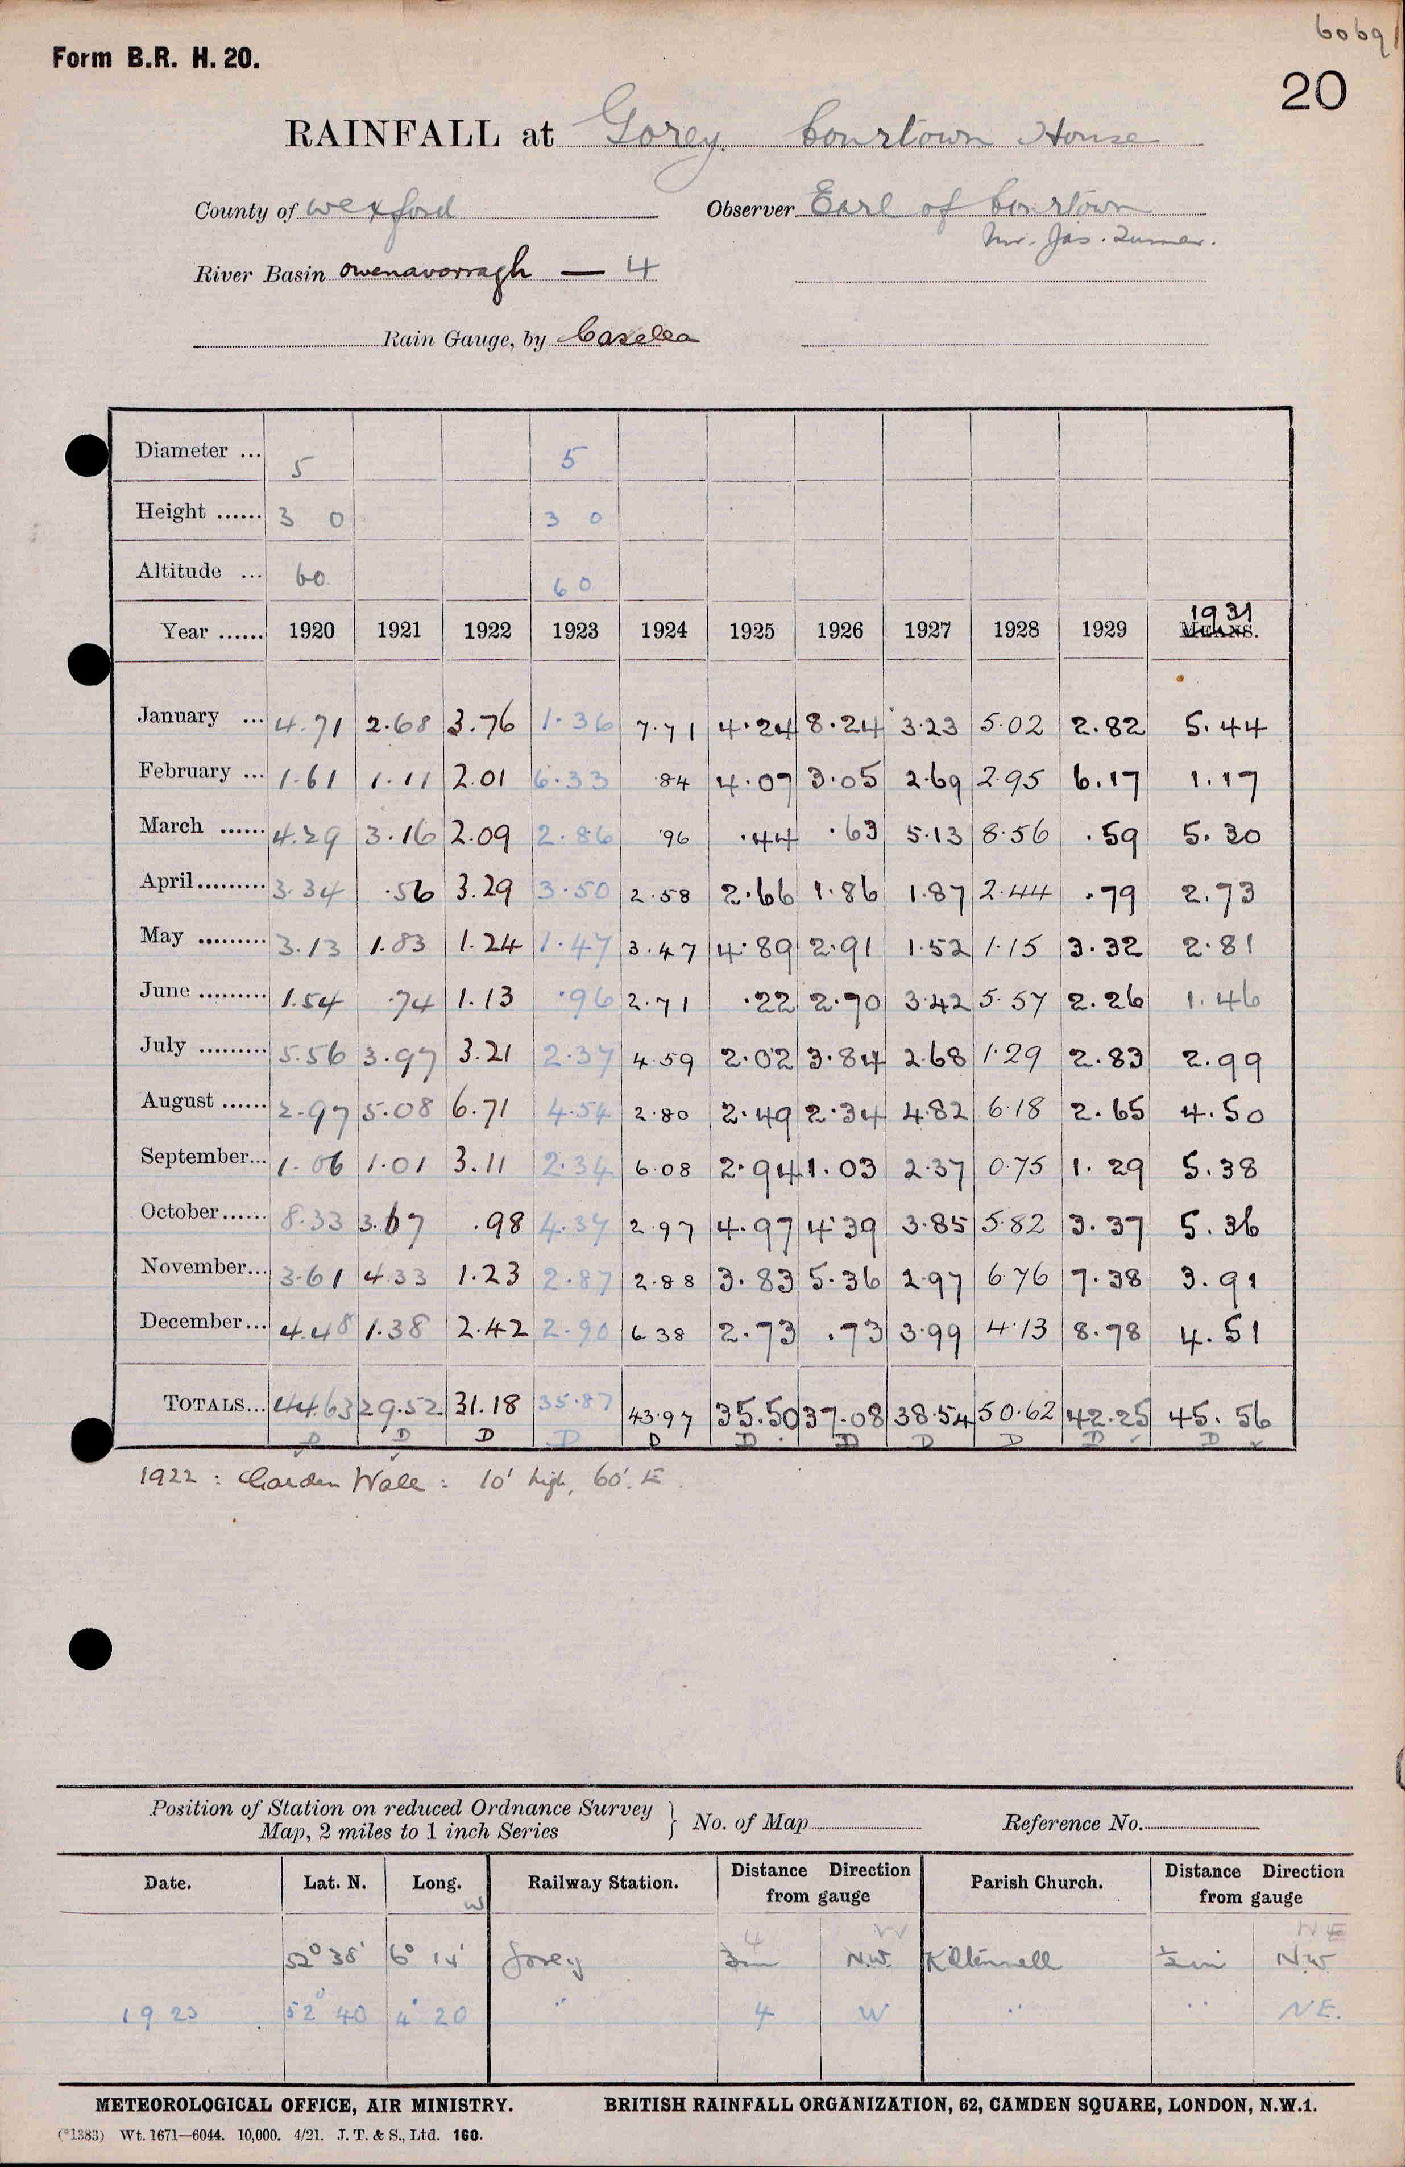 6069
Form B.R. H. 20.
20
RAINFALL at Gorey Courtown House
County of Wexford Observer Earl of Courtown
Mr. Jas.
River Basin Owenavorragh — 4
Rain Gauge, by Casella
Diameter ... 5 5
Height ...... 3 0 3 0
Altitude ... 60 60
Year ...... 1920 1921 1922 1923 1924 1925 1926 1927 1928 1929 MEANS. 1931
January ... 4.71 2.68 3.76 1.36 7.71 4.24 8.24 3.23 5.02 2.82 5.44
February ... 1.61 1.11 2.01 6.33 .84 4.07 3.05 2.69 2.95 6.17 1.17
March ...... 4.29 3.16 2.09 2.86 .96 .44 .63 5.13 8.56 .59 5.30
April......... 3.34 .56 3.29 3.50 2.58 2.66 1.86 1.87 2.44 .79 2.73
May ......... 3.13 1.83 1.24 1.47 3.47 4.89 2.91 1.52 1.15 3.32 2.81
June ......... 1.54 .74 1.13 .96 2.71 .22 2.70 3.42 5.57 2.26 1.46
July ......... 5.56 3.97 3.21 2.37 4.59 2.02 3.84 2.68 1.29 2.83 2.99
August ...... 2.97 5.08 6.71 4.54 2.80 2.49 2.34 4.82 6.18 2.65 4.50
September... 1.06 1.01 3.11 2.34 6.08 2.94 1.03 2.37 0.75 1.29 5.38
October...... 8.33 3.67 .98 4.37 2.97 4.97 4.39 3.85 5.82 3.37 5.36
November... 3.61 4.33 1.23 2.87 2.88 3.83 5.36 2.97 6.76 7.38 3.91
December... 4.48 1.38 2.42 2.90 6.38 2.73 .73 3.99 4.13 8.78 4.51
TOTALS... 44.63 29.52 31.18 35.87 43.97 35.50 37.08 38.54 50.62 42.25 45.56
D D D D D D D D D D D
1922 : Garden Wall : 10' high, 60' E.
Position of Station on reduced Ordnance Survey
Map, 2 miles to 1 inch Series } No. of Map Reference No.
Date. Lat. N. Long. W Railway Station. Distance Direction from gauge Parish Church. Distance Direction from gauge
4 W NE
52° 38' 6° 14' Gorey 3m N.W. Kiltennell ½ mi N.W
1923 52° 40 4° 20 " 4 W " " NE.
METEOROLOGICAL OFFICE, AIR MINISTRY. BRITISH RAINFALL ORGANIZATION, 62, CAMDEN SQUARE, LONDON, N.W.1.
(*1383) Wt. 1671—6044. 10,000. 4/21. J. T. & S., Ltd. 160.